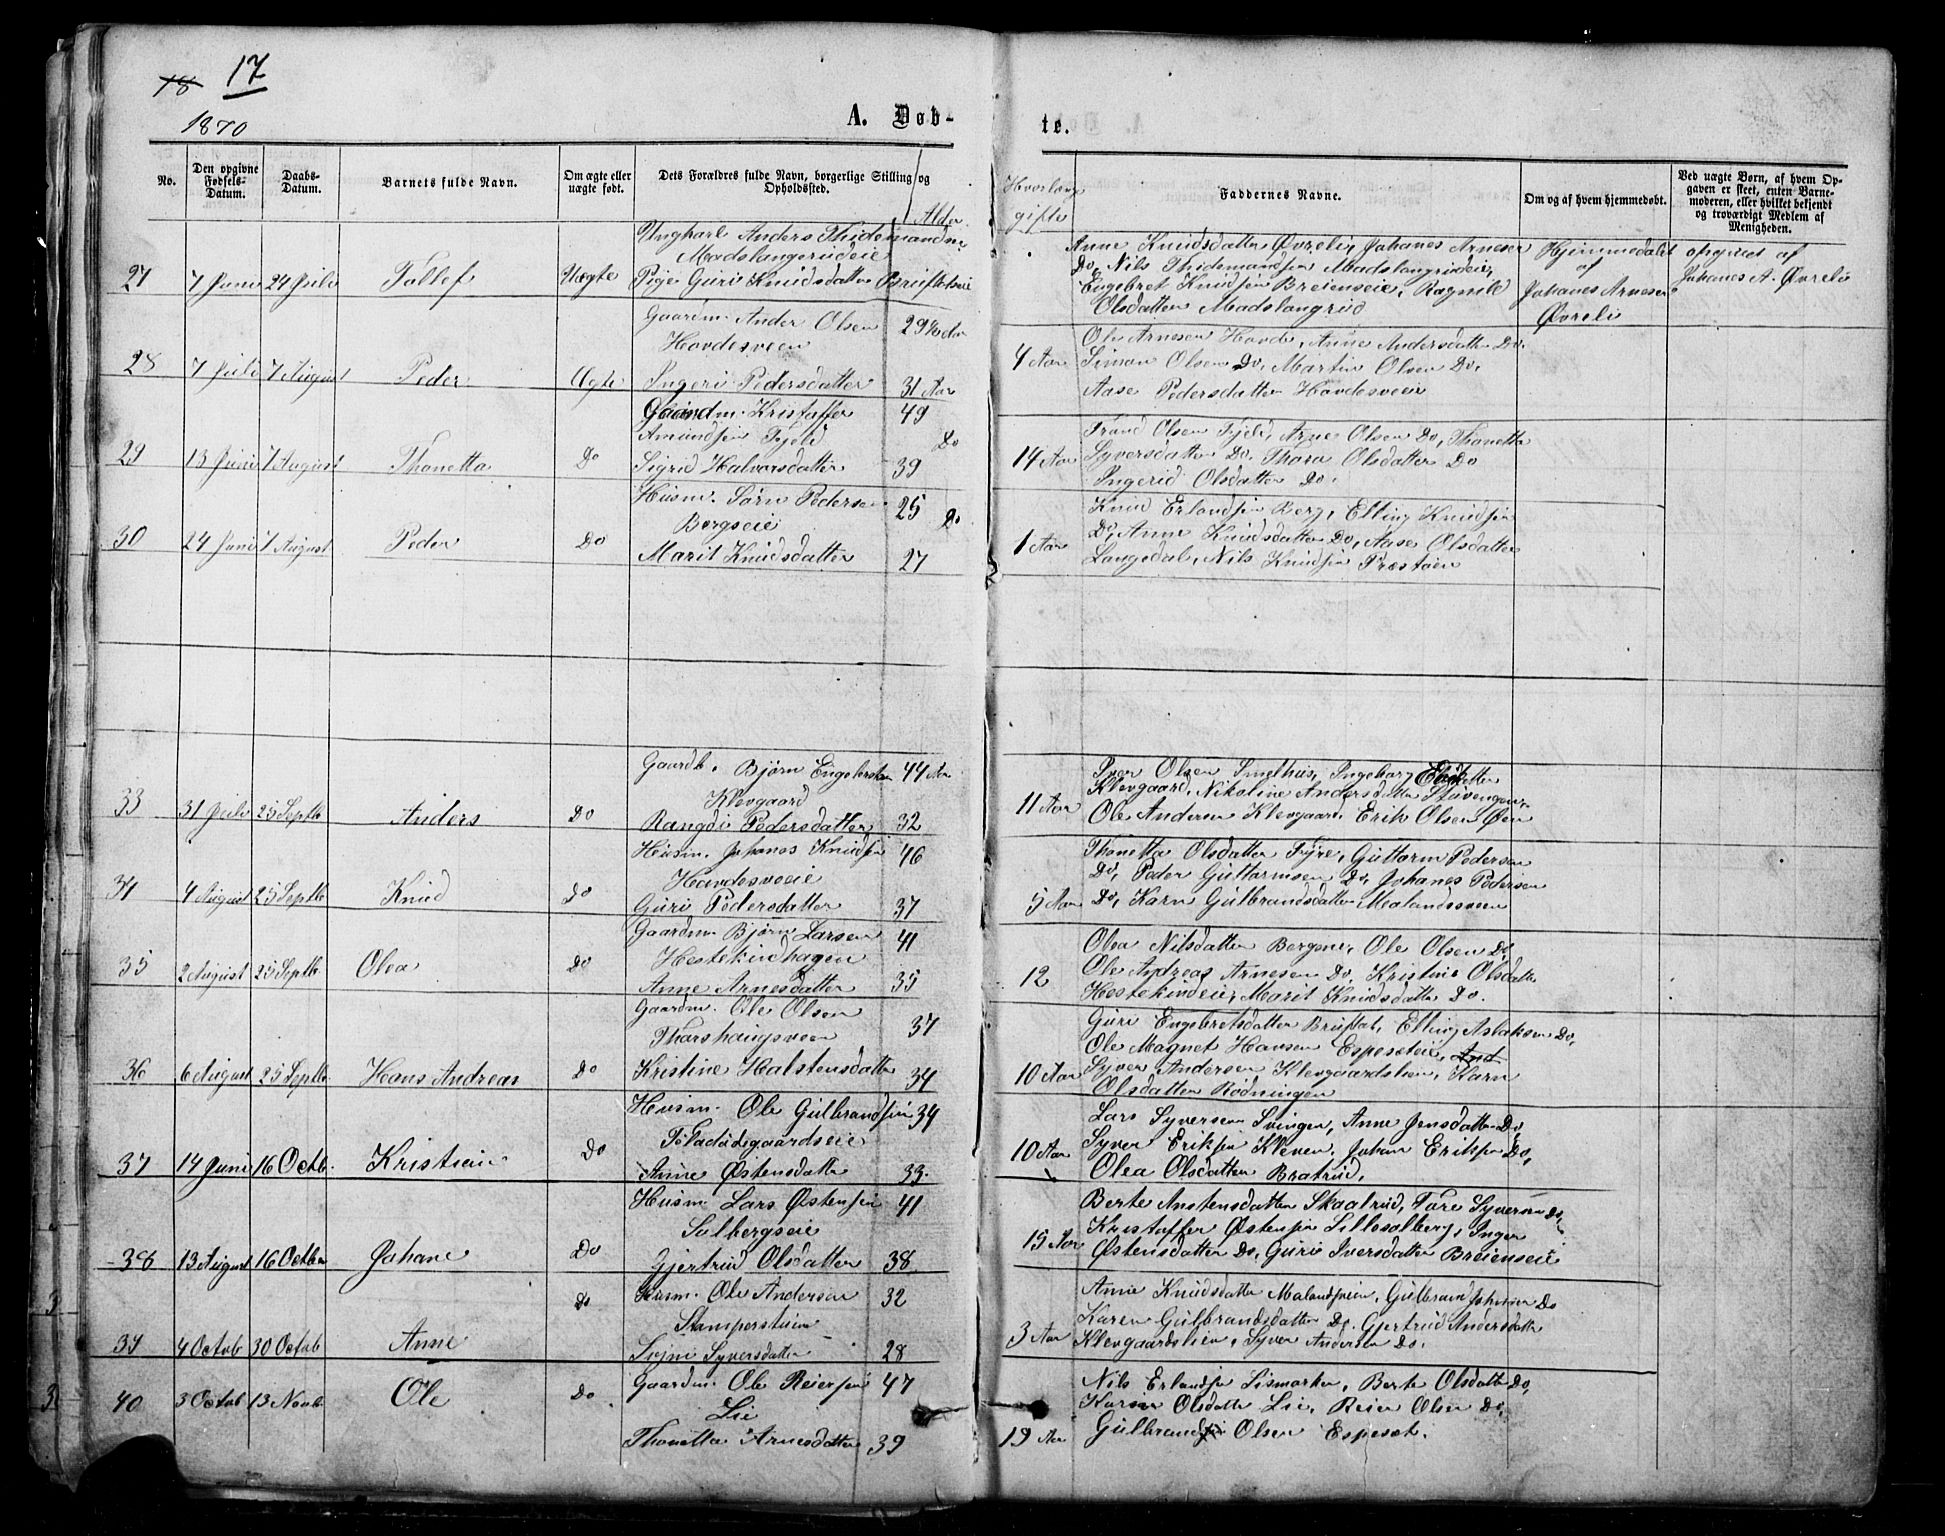 18 17
1870
A. Døb-
te.
No.
Den opgivne Fødsels-Datum.
Daabs-Datum.
Barnets fulde Navn.
Om ægte eller uægte født.
Dets Forældres fulde Navn, borgerlige Stilling og Opholdssted.
Alder
Hvorlænge gifte
Faddernes Navne.
Om og af hvem hjemmedøbt.
Ved uægte Børn, af hvem Op-
gaven er skeet, enten Barne-
moderen, eller hvilket bekjendt
og troværdigt Medlem af
Menigheden.
Ungkarl Anders Thidemandsen
Madslangrudeie
27 7 Juni 24 Juli Tollef Uægte Pige Guri Knudsdatter
Anne Knudsdatter Øvreli, Johanes Arnesen
Do, Nils Thidemandsen Madslangrudeie,
Engebret Knudsen Breienseie, Ragnild
Olsdatter Madslangrud
Hjemmedøbt
af
Johanes Arnesen
Øvreli
opgivet af
Johanes A. Øvreli
Gaardm. Ander Olsen 29 Aar
Hovdesveen
28 7 Juli 7 August Peder Ægte Ingeri Pedersdatter 31 Aar
4 Aar
Ole Arnesen Hovde, Anne Andersdatter Do.
Simon Olsen Do, Martin Olsen Do,
Aase Pedersdatter Hovdesveen
Gaardm. Kristaffer 49
Amundsen Fjeld Do
29 13 Juni 7 August Thonetta Do Sigrid Halvorsdatter 39
14 Aar
Trond Olsen Fjeld, Arne Olsen Do, Thonetta
Syversdatter Do, Thora Olsdatter Do
Ingerid Olsdatter Do.
Husm. Sørn Pedersen 25
Bergseie Do
30 24 Juni 7 August Peder Do Marit Knudsdatter 27
1 Aar
Knud Erlandsen Berg, Elling Knudsen
Do, Anne Knudsdatter Do, Aase Olsdatter
Langedal, Nils Knudsen Præstøen
Gaardb. Bjørn Engebretsen 44 Aar
Klevgaard
33 31 Juli 25 Septb Anders Do Rangdi Pedersdatter 32
11 Aar
Iver Olsen Smedhus, Ingeborg
Klevgaard, Nikoline Andersdatter Stavengen,
Ole Andersen Klevgaard, Erik Olsen Øen
Husm. Johanes Knudsen 46
Hovdesveeie
34 4 August 25 Septb Knud Do Guri Pedersdatter 37
5 Aar
Thonetta Olsdatter Fyre, Guttorm Pedersen
Do, Peder Guttormsen Do, Johanes Pedersen
Do, Karn Gulbrandsdatter Molandsveen
Gaardm. Bjørn Larsen 41
Hestekindhagen
35 2 August 25 Septb. Olea Do Anne Arnesdatter 35
12
Olea Nilsdatter Bergene, Ole Olsen Do,
Ole Andreas Arnesen Do, Kristine Olsdatter
Hestekindeie, Marit Knudsdatter Do.
Gaardm. Ole Olsen
Thorshaugsveen 37
36 6 August 25 Septb. Hans Andreas Do Kristine Halstensdatter 34
10 Aar
Guri Engebretsdatter Bruflat, Elling Aslaksen Do,
Ole Magnet Hansen Espeseteie, And
Syver Andersen Klevgaardslien, Karn
Olsdatter Rødningen
Husm. Ole Gulbrandsen 34
Toladødegaardseie
37 14 Juni 16 Octb. Kristian Do Anne Østensdatter 33.
10 Aar
Lars Syversen Svingen, Anne Jensdatter Do,
Syver Eriksen Kleven, Johan Eriksen Do,
Olea Olsdatter Bratrud.
Husm. Lars Østensen 41
Solbergseie
38 13 August 16 Octber Johane Do Gjertrud Olsdatter 38
15 Aar
Berte Anstensdatter Skaalrud, Tore Syversen Do,
Kristoffer Østensen Lillesolberg, Inger
Østensdatter Do, Guri Iversdatter Breienseie
Husm. Ole Andersen 32
39 4 Octob 30 Octob Anne Do Syversdatter 28
3 Aar
Anne Knudsdatter, Gulbrand Johnsen Do
Karen Gulbrandsdatter Do. Gjertrud Andersdatter
Klevgaardslien, Syver Andersen Do.
Gaardm. Ole Reiersen 47
Lie
40 3 Octob 13 Novb. Ole Do Thonetta Arnesdatter 39
19 Aar
Nils Erlandsen Lismarken, Berte Olsdatter Do,
Karen Olsdatter Lie, Reier Olsen Do,
Gulbrand Olsen Espeset.